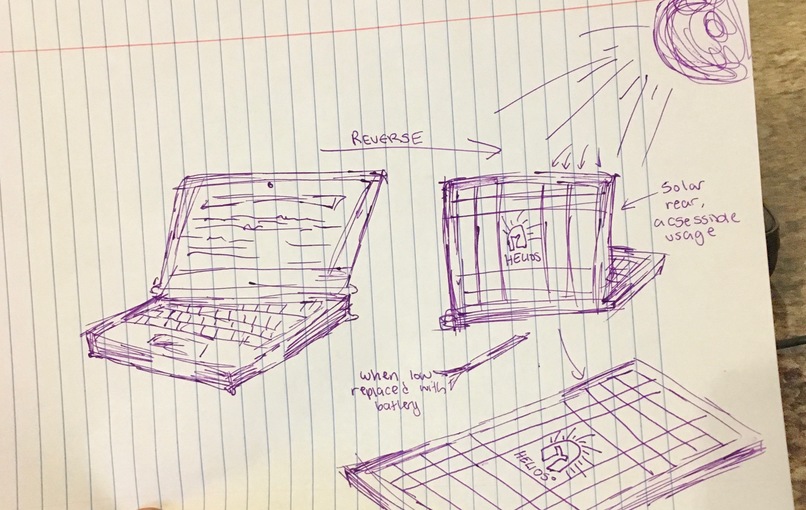 REVERSE
Solar
rear,
acsessible
usage
HELIOS
when low
replaced with
battery
HELIOS